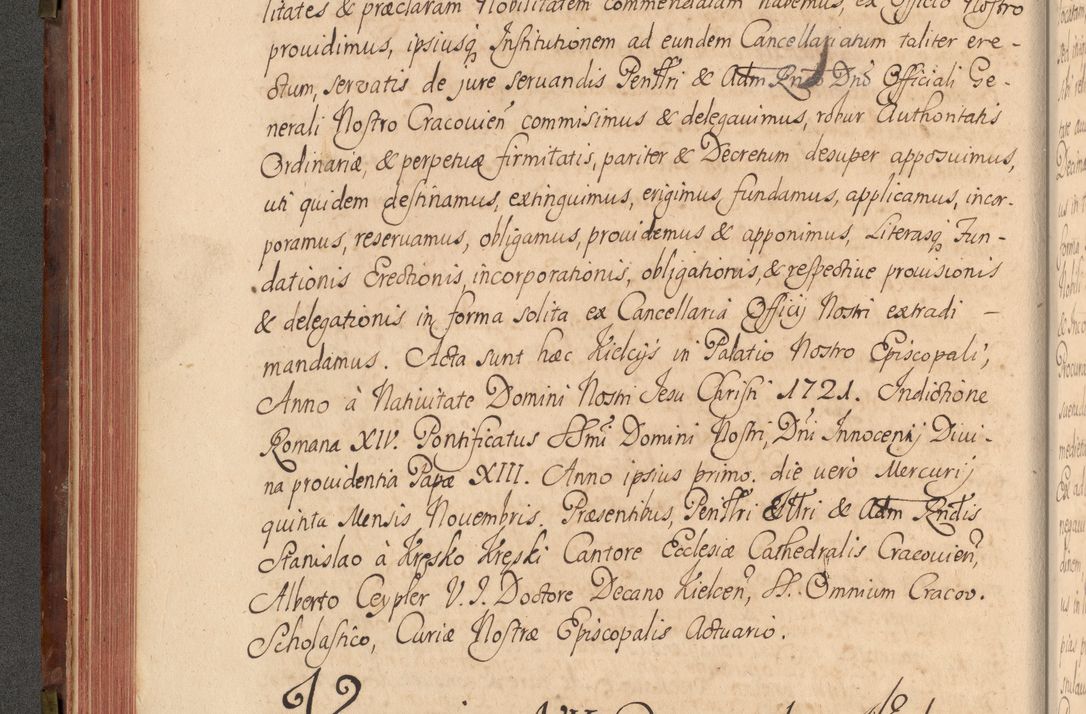 litates & præclaram Nobilitatem commendatam habemus, ex Officio Nostro
prouidimus, ipsiusq Institutionem ad eundem Cancellariatum taliter ere-
ctum, servatis de jure servandis Penllri & Adm Rndo Dnō Officiali Ge-
nerali Nostro Cracouieñ commisimus & delegauimus, robur Authoritatis
Ordinariæ, & perpetuæ firmitatis, pariter & Decretum desuper apposuimus,
uti quidem destinamus, extinguimus, erigimus, fundamus, applicamus, incor-
poramus, reseruamus, obligamus, prouidemus & apponimus, Literasq Fun-
dationis Erectionis, incorporationis, obligationis, & respective prouisionis
& delegationis in forma solita ex Cancellaria Officij Nostri extradi –
mandamus. Acta sunt hæc Kielcijs in Palatio Nostro Episcopali,
Anno à Nativitate Domini Nostri Jesu Christi 1721. Indictione
Romana XIV. Pontificatus SSmi Domini Nostri, Dñi Innocentij Divi-
na prouidentia Papæ XIII. Anno ipsius primo. die verò Mercurij
quinta Mensis Novembris. Præsentibus, Penllri Illtri & Adm Rndis
Stanislao à Kręsko Kręski Cantore Ecclesiæ Cathedralis Cracouieñ,
Alberto Ceypler V. J. Doctore Decano Kielceñ, SS. Omnium Cracov.
Scholastico, Curiæ Nostræ Episcopalis Actuario.